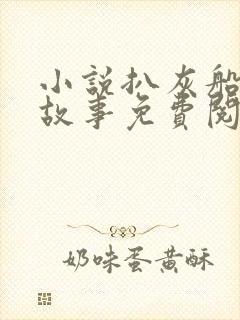 小說扒灰船
故事免費閱
奶味蛋黃酥